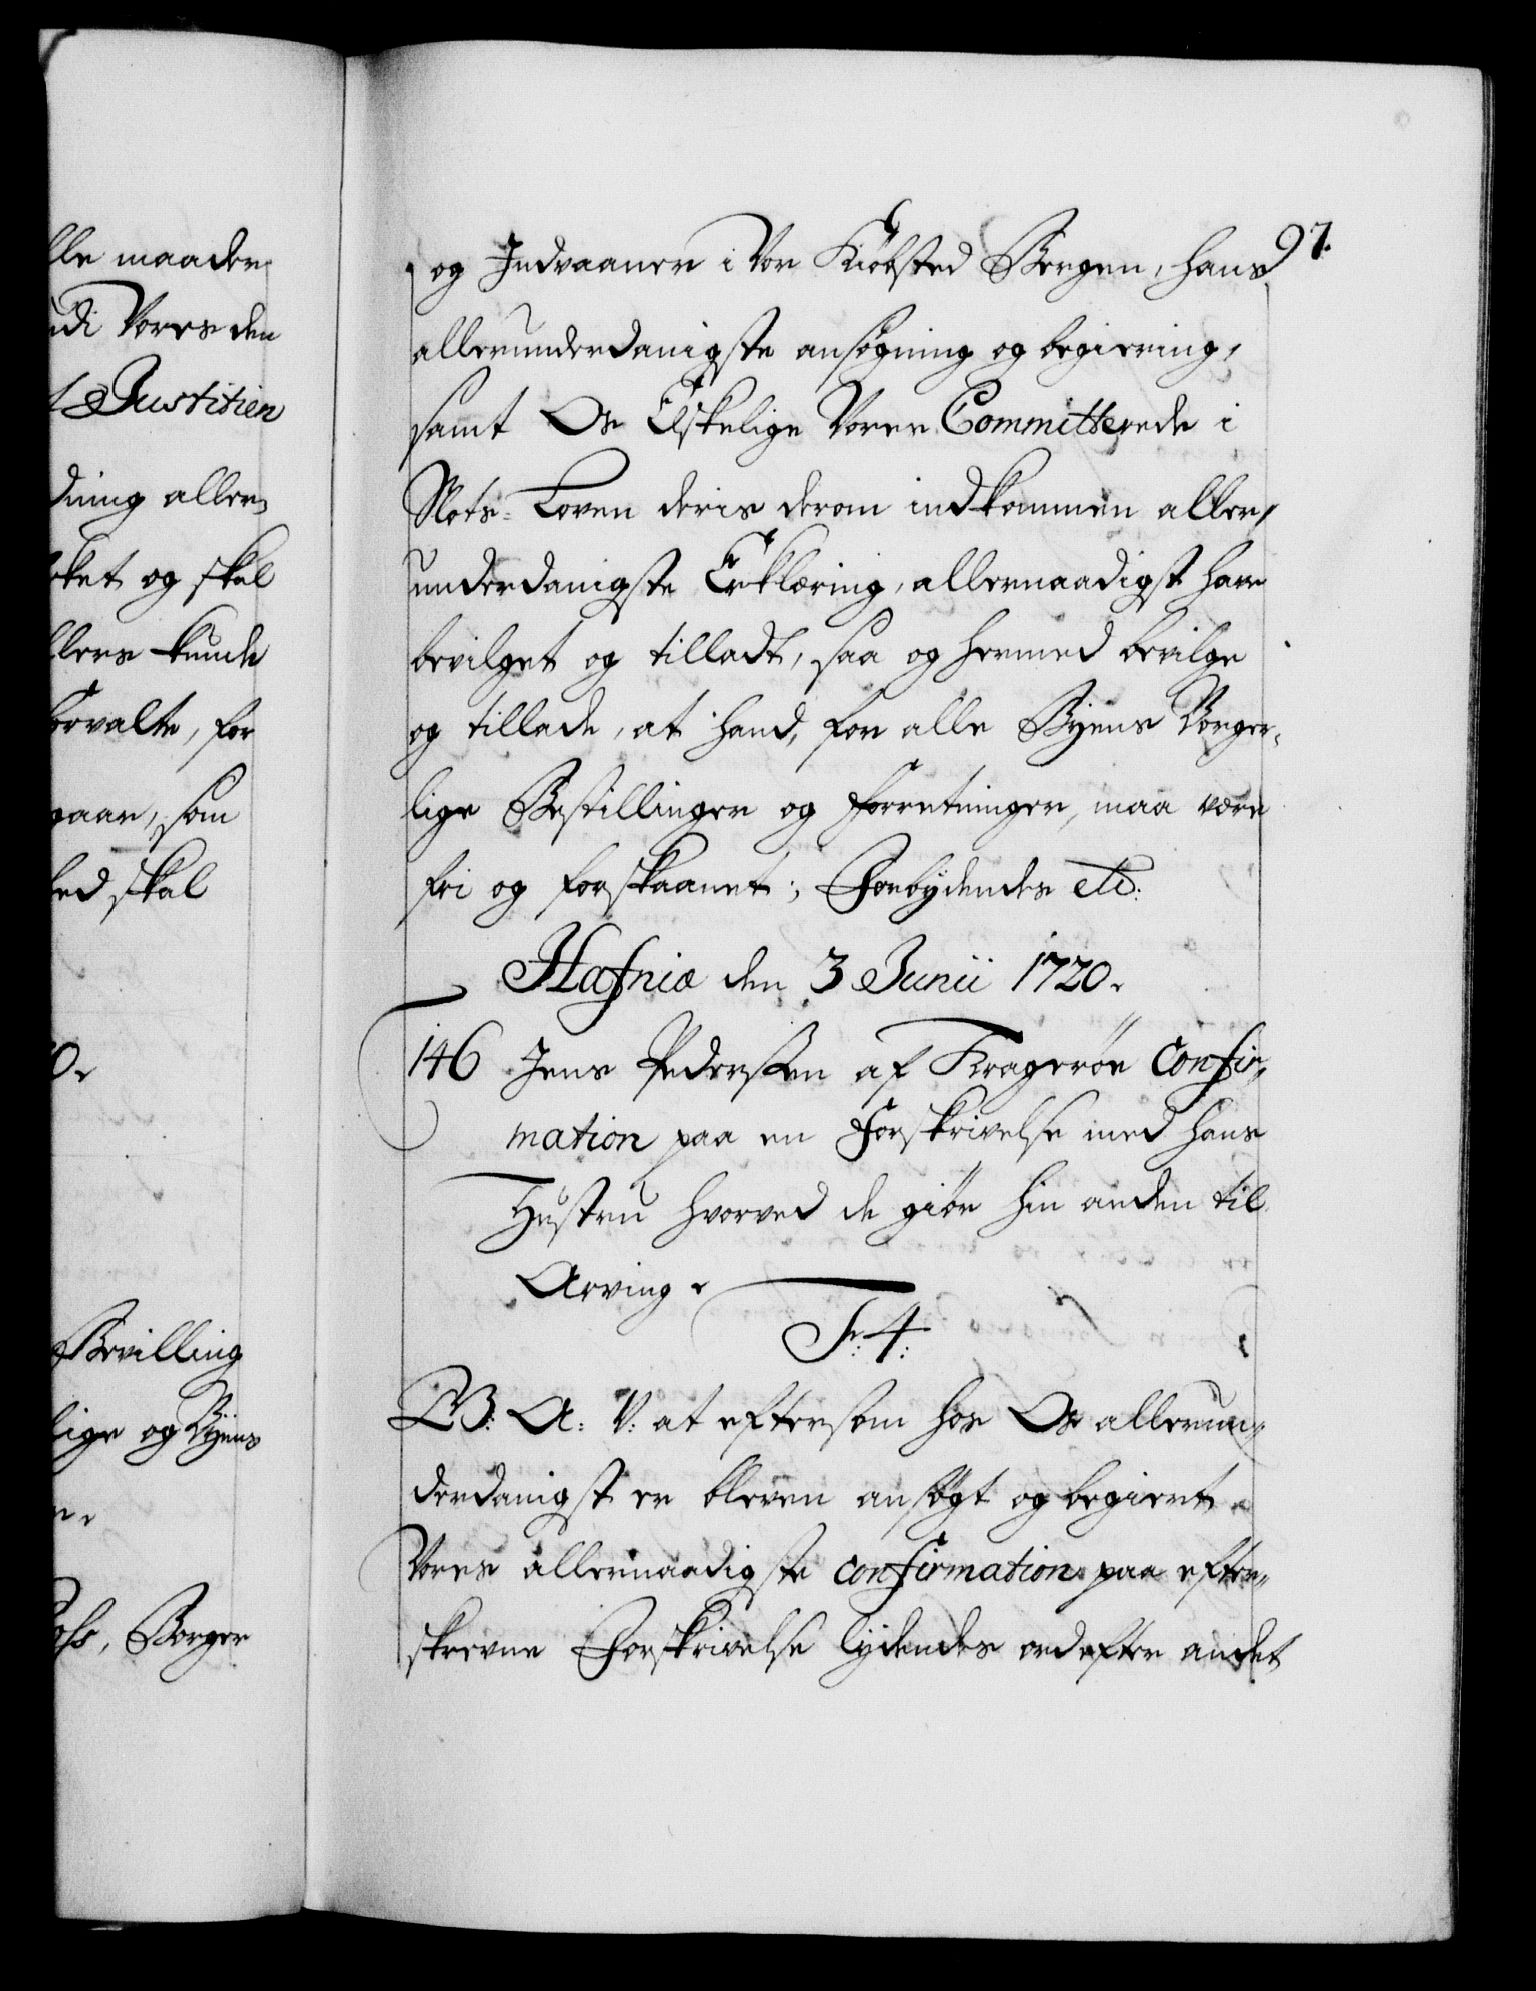 lle maader
ndi Vores den
t Justitien
dning aller-
rket og skal
llers kunde
for
gaar, som
hed skal
0.
Bevilling
lige og Byens
Borger
97.
og Indvaaner i Vor Kiøbsted Bergen, hans
allerunderdanigste ansøgning og begiering,
samt Os Elskelige Vores Committerede i
Slots-Loven deris derom indkommen aller-
underdanigste Erklæring, allernaadigst have
bevilget og tilladt, saa og hermed bevilge
og tillade, at hand, for alle Byens Borger-
lige Bestillinger og Forretninger, maa være
fri og forskaanet; Forbydendes etc:
Hafniæ den 3 Junii 1720.
146 Jens Pederssen af Kragerøe Confir-
mation paa en Forskrivelse med hans
Hustru hvorved de giør hin anden til
Arving.
F: 4:
G: A: V: at eftersom hos Os allerun-
derdanigst er bleven ansøgt og begiert
Vores allernaadigste confirmation paa efter-
skrevne Forskrivelse lydendes ord efter andet